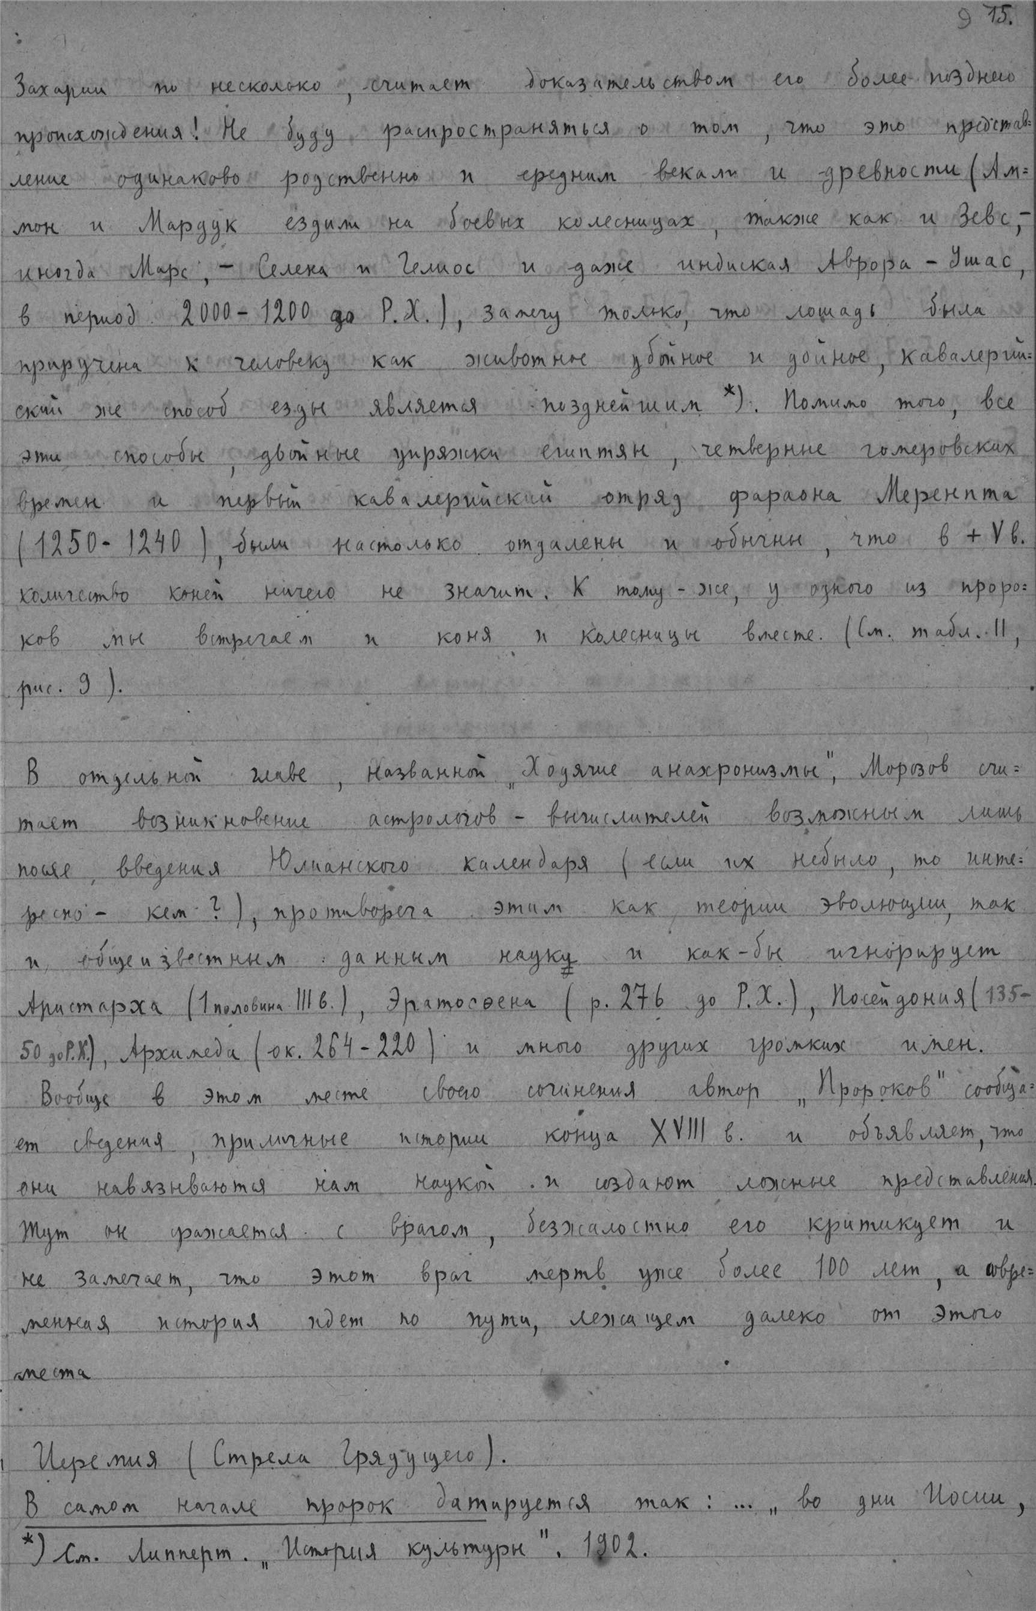 9 15.
Захарии по несколько, считает доказательством его более позднего
происхождения! Не буду распространяться о том, что это представ=
ление одинаково родственно и средним векам и древности (Ам=
мон и Мардук ездили на боевых колесницах, также как и Зевс,-
иногда Марс,- Селена и Гелиос и даже индиская Аврора - Ушас,
в период 2000-1200 до Р.Х.), замечу только, что лошадь была
приручена к человеку как животное убойное и удойное, кавалерий=
ский же способ езды является позднейшим *). Помимо того, все
эти способы, двойные упряжки египтян, четверные гомеровских
времен и первый кавалерийский отряд фараона Меренпта
(1250-1240), были настолько отдалены и обычны, что в +V в.
количество коней ничего не значит. К тому-же, у одного из проро=
ков мы встречаем и коня и колесницы вместе. (См. табл. II,
рис. 9).
В отдельной главе, названной „Ходячие анахронизмы", Морозов счи=
тает возникновение астрологов - вычислителей возможным лишь
после введения Юлианского календаря (если их небыло, то инте=
ресно - кем?), противореча этим как теории эволюции, так
и общеизвестным данным науку и как-бы игнорирует
Аристарха (1 половина III в.), Эратосѳена (р. 276 до Р.Х.), Посейдония (135-
50 до Р.Х.), Архимеда (ок. 264-220) и много других громких имен.
Вообще в этом месте своего сочинения автор „Пророков" сообща=
ет сведения, приличные истории конца XVIII в. и объявляет, что
они навязываются нам наукой и создают ложные представления.
Тут он сражается с врагом, безжалостно его критикует и
не замечает, что этот враг мертв уже более 100 лет, а совре=
менная история идет по пути, лежащем далеко от этого
места
Иеремия (Стрела Грядущего).
В самом начале пророк датируется так: ... „во дни Иосии,
*) См. Липперт. „История культуры". 1902.